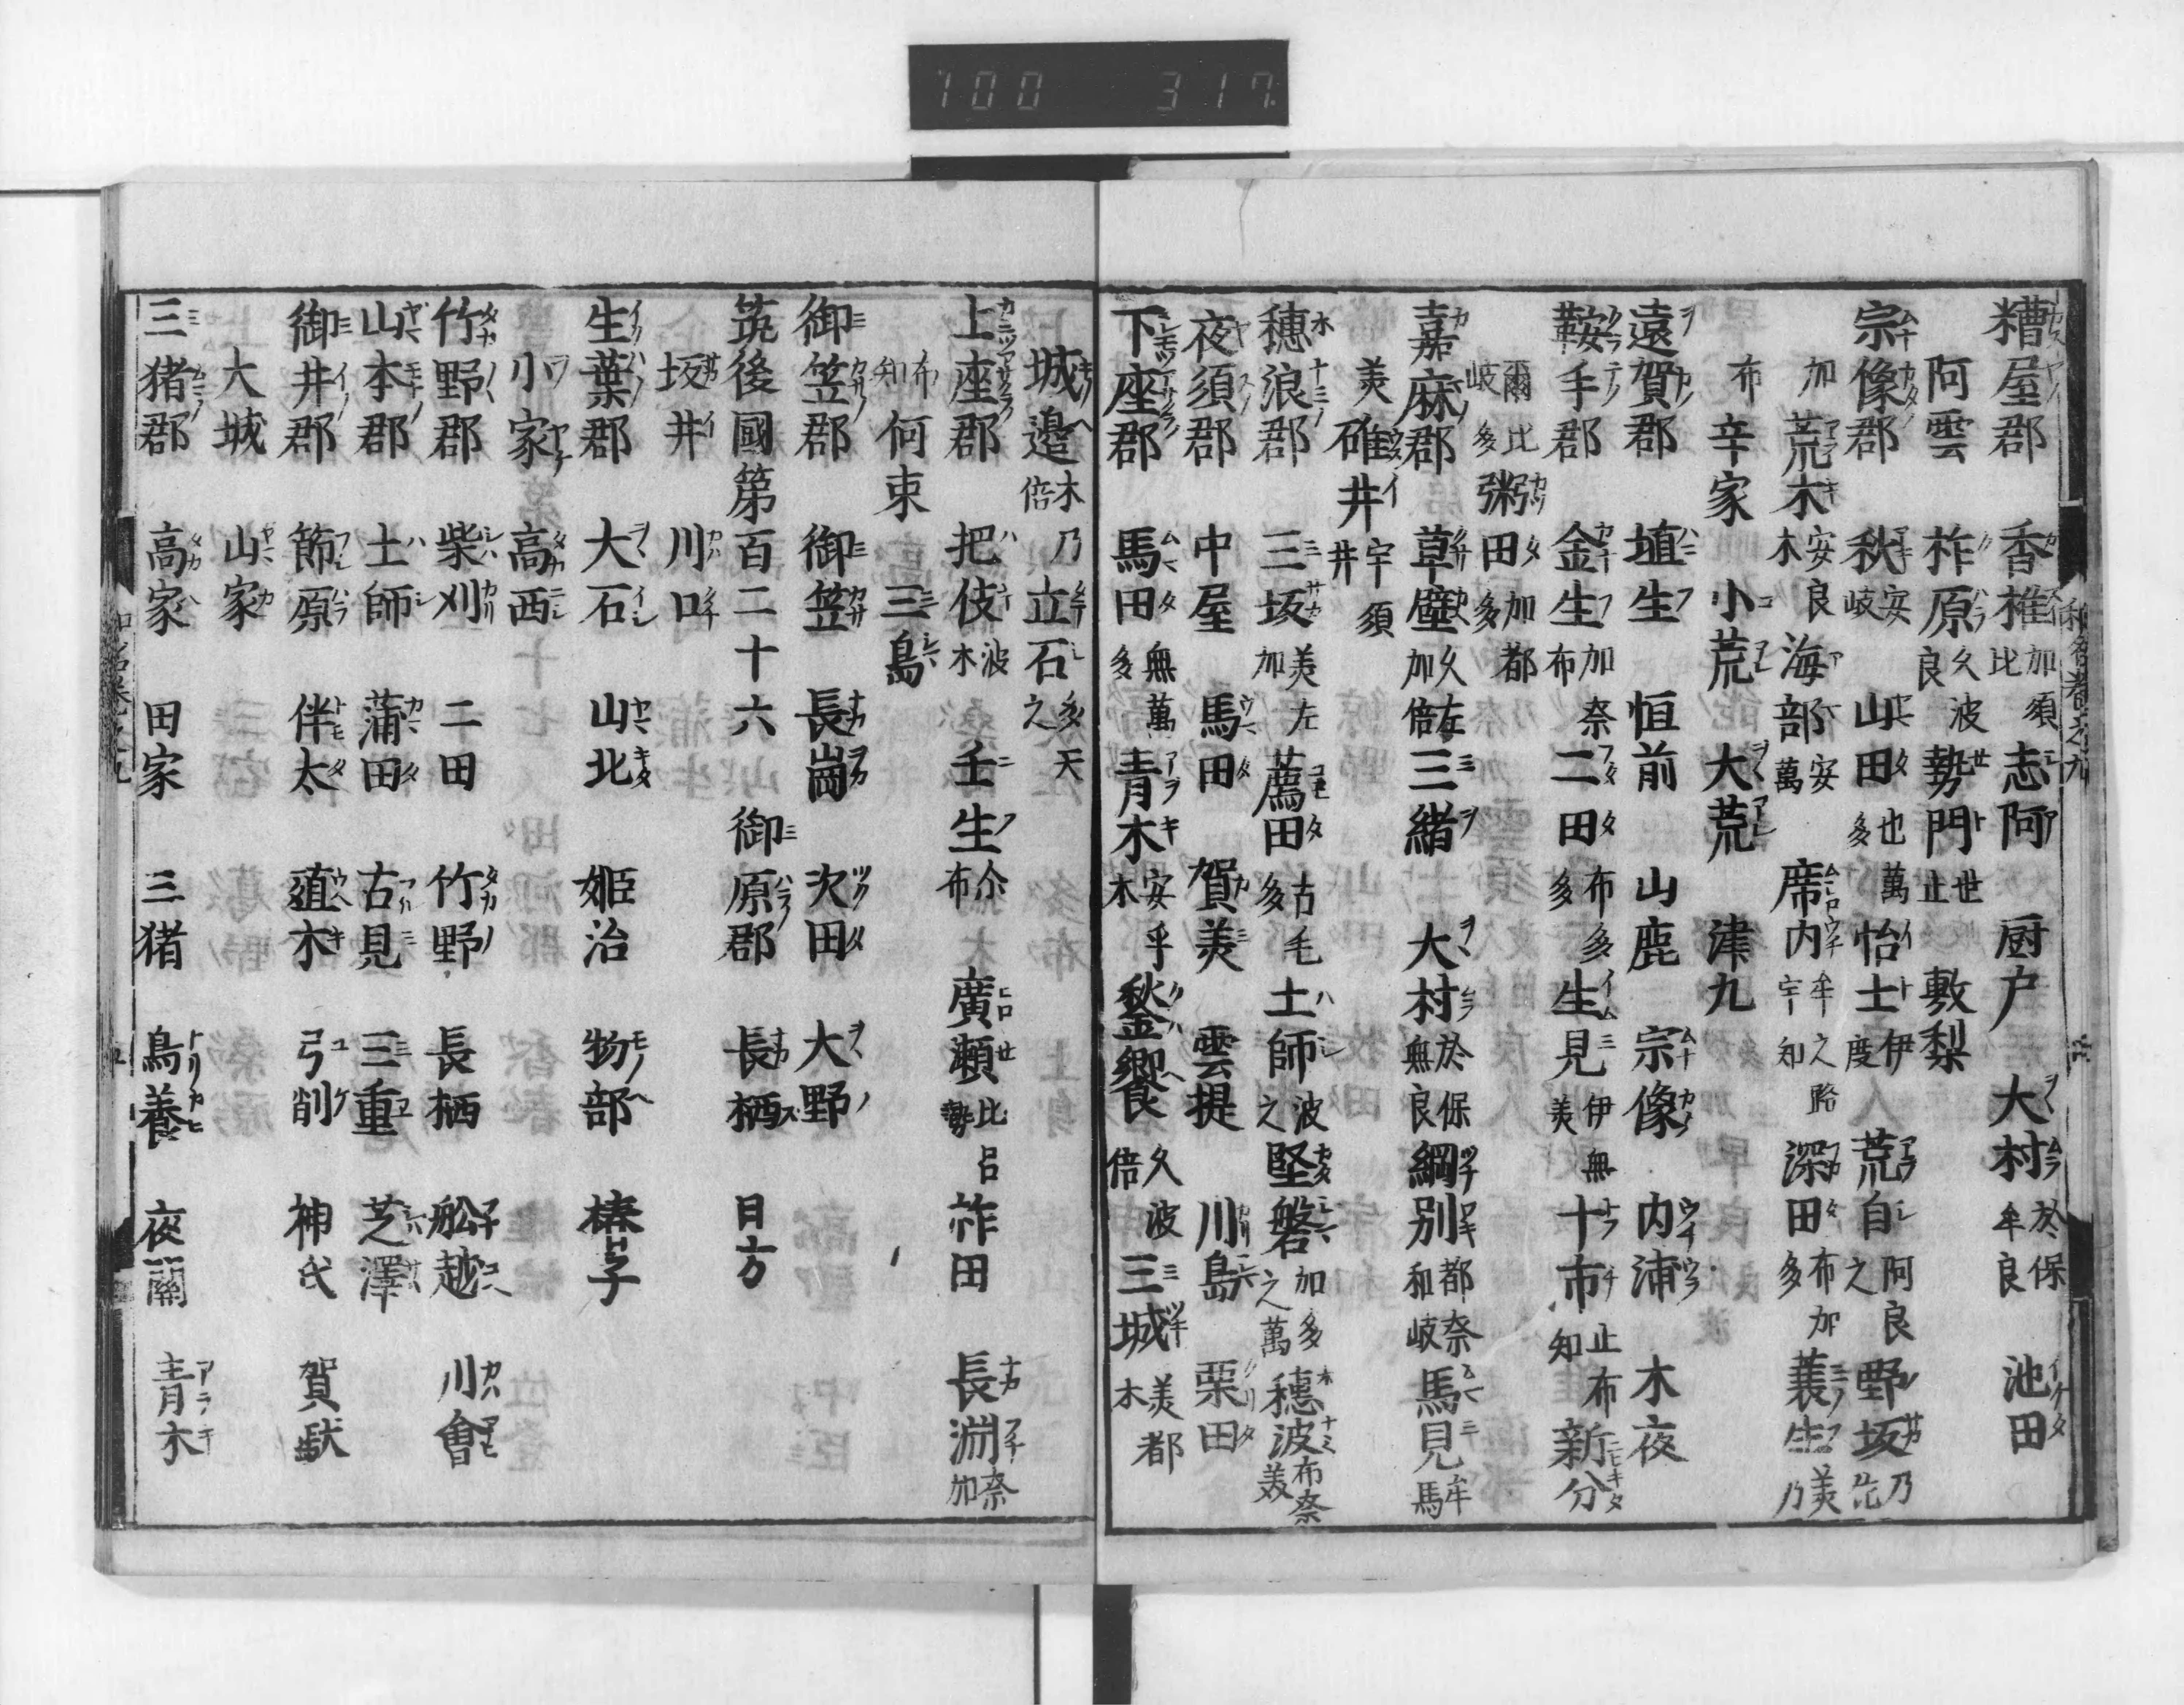 100 317
糟屋郡 香椎加須比 志阿 厨戸 大村於保牟良 池田
阿雲 柞原久波良 勢門世止 敷梨
宗像郡 秋安岐 山田也萬多 怡土伊度 荒自阿良之 野坂乃
加 荒木安良木 海部安萬 席内牟之路宇知 深田布加多 蓑生美乃
布 辛家 小荒 大荒 津九
遠賀郡 埴生 垣前 山鹿 宗像 内浦 木夜
鞍手郡 金生加奈布 二田布多多 生見伊無美 十市止布知 新分
爾比岐多 粥田加都多
嘉麻郡 草壁久左加倍 三緒 大村於保無良 綱別都奈和岐 馬見牟馬
美 碓井宇須井
穂浪郡 三坂美左加 薦田古毛多 土師波之 堅磐加多之萬 穂波布奈美
夜須郡 中屋 馬田 賀美 雲提 川島 栗田
下座郡 馬田無萬多 青木安乎木 鍫饗久波倍 三城美都木
城邉木乃倍 立石多天之
上座郡 把伎波木 壬生介布 廣瀬比呂勢 柞田 長淵奈加
布知 何束 三島
御笠郡 御笠 長崗 次田 大野
筑後國第百二十六 御原郡 長栖 日方
坂井 川口
生葉郡 大石 山北 姫治 物部 椿子
小家 高西
竹野郡 柴刈 二田 竹野 長栖 舩越 川會
山本郡 土師 蒲田 古見 三重 芝澤
御井郡 節原 伴太 殖木 弓削 神氏 賀駄
大城 山家
三猪郡 高家 田家 三猪 鳥養 夜開 青木